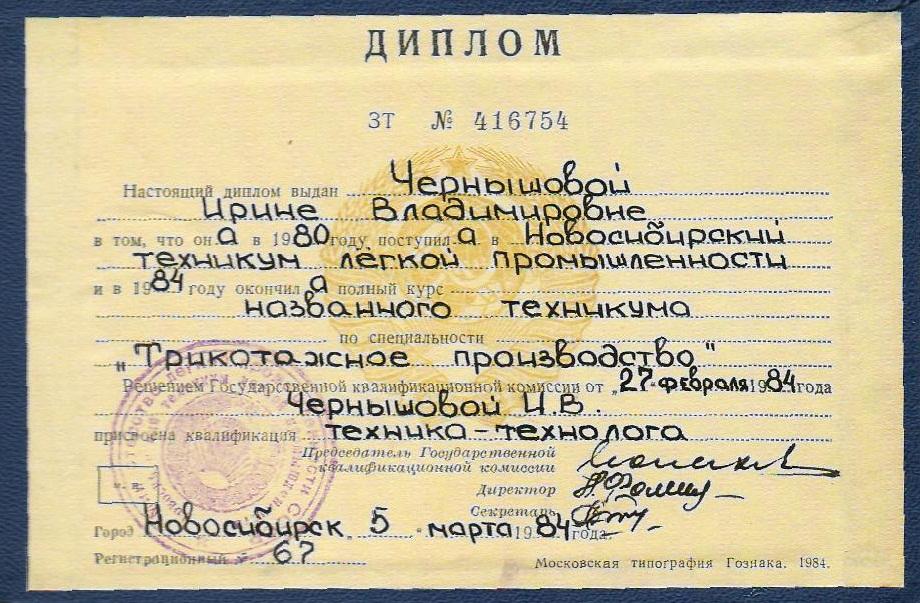 ДИПЛОМ
ЗТ № 416754
Настоящий диплом выдан Чернышовой
Ирине Владимировне
в том, что она в 1980 году поступила в Новосибирский
техникум лёгкой промышленности
и в 1984 году окончила полный курс
названного техникума
по специальности
„Трикотажное производство"
Решением Государственной квалификационной комиссии от „27" февраля 1984 года
Чернышовой И.В.
присвоена квалификация техника-технолога
Председатель Государственной
квалификационной комиссии
Директор
Секретарь
Город Новосибирск, 5 марта 1984 года.
Регистрационный № 67
Московская типография Гознака. 1984.